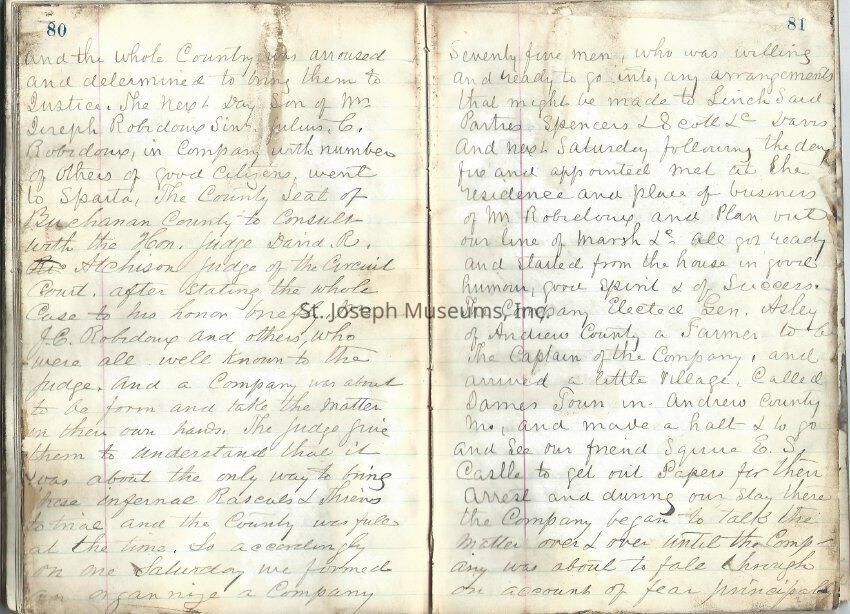 80
and the whole County was aroused
and determined to bring them to
Justice. The Next Day Son of Mr
Joseph Robidoux Sinr. Julius. C.
Robidoux, in Company with number
of others of good Citizens, went
to Sparta, The County Seat of
Buchanan County to Consult
with the Hon. judge David R.
Atchison judge of the Circuit
Court. after stating the whole
Case to his honor briefly, Mr
J.C. Robidoux and others, who
were all well known to the
judge. and a Company was about
to be form and take the matter
in their own hands. The judge give
them to understand that it
was about the only way to bring
these infernal Rascals & Thieves
to trial and the County was full
at the time. So accordingly
on one Saturday we formed
an organize a Company
81
Seventy five men, who was willing
and ready to go into, any arrangements
that might be made to Linch Said
Parties Spencers & Scott &c Davis
and next Saturday following the day
fix and appointed met at the
residence and place of business
of Mr Robidoux and Plan out
our line of Marsh &c all got ready
and started from the house in good
humour, good Spirit & of Success.
The Company Elected Gen. Asley
of Andrew County a Farmer to be
The Captain of the Company, and
arrived a little Village. Called
James Town in Andrew County
Mo, and made a halt & to go
and See our friend Squire E. S.
Castle to get out Papers for their
arrest and during our stay there
the Company began to talk the
matter over & over until the Comp-
any was about to fale through
on account of fear principaly
St. Joseph Museums, Inc.